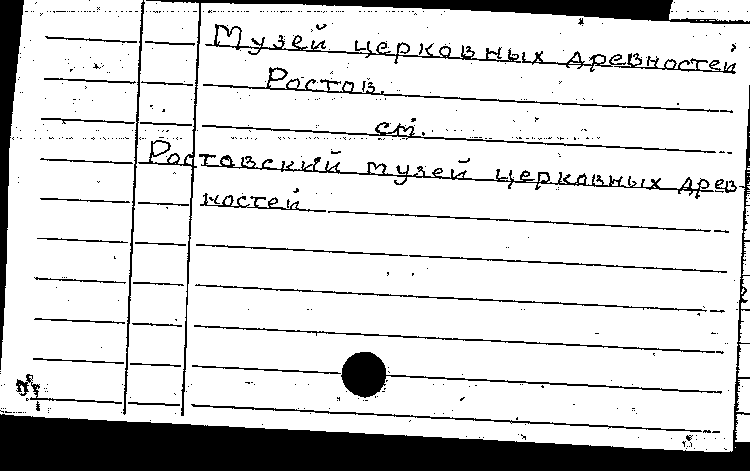 Музей церковных древностей
Ростов.
см.
Ростовский музей церковных древ-
ностей